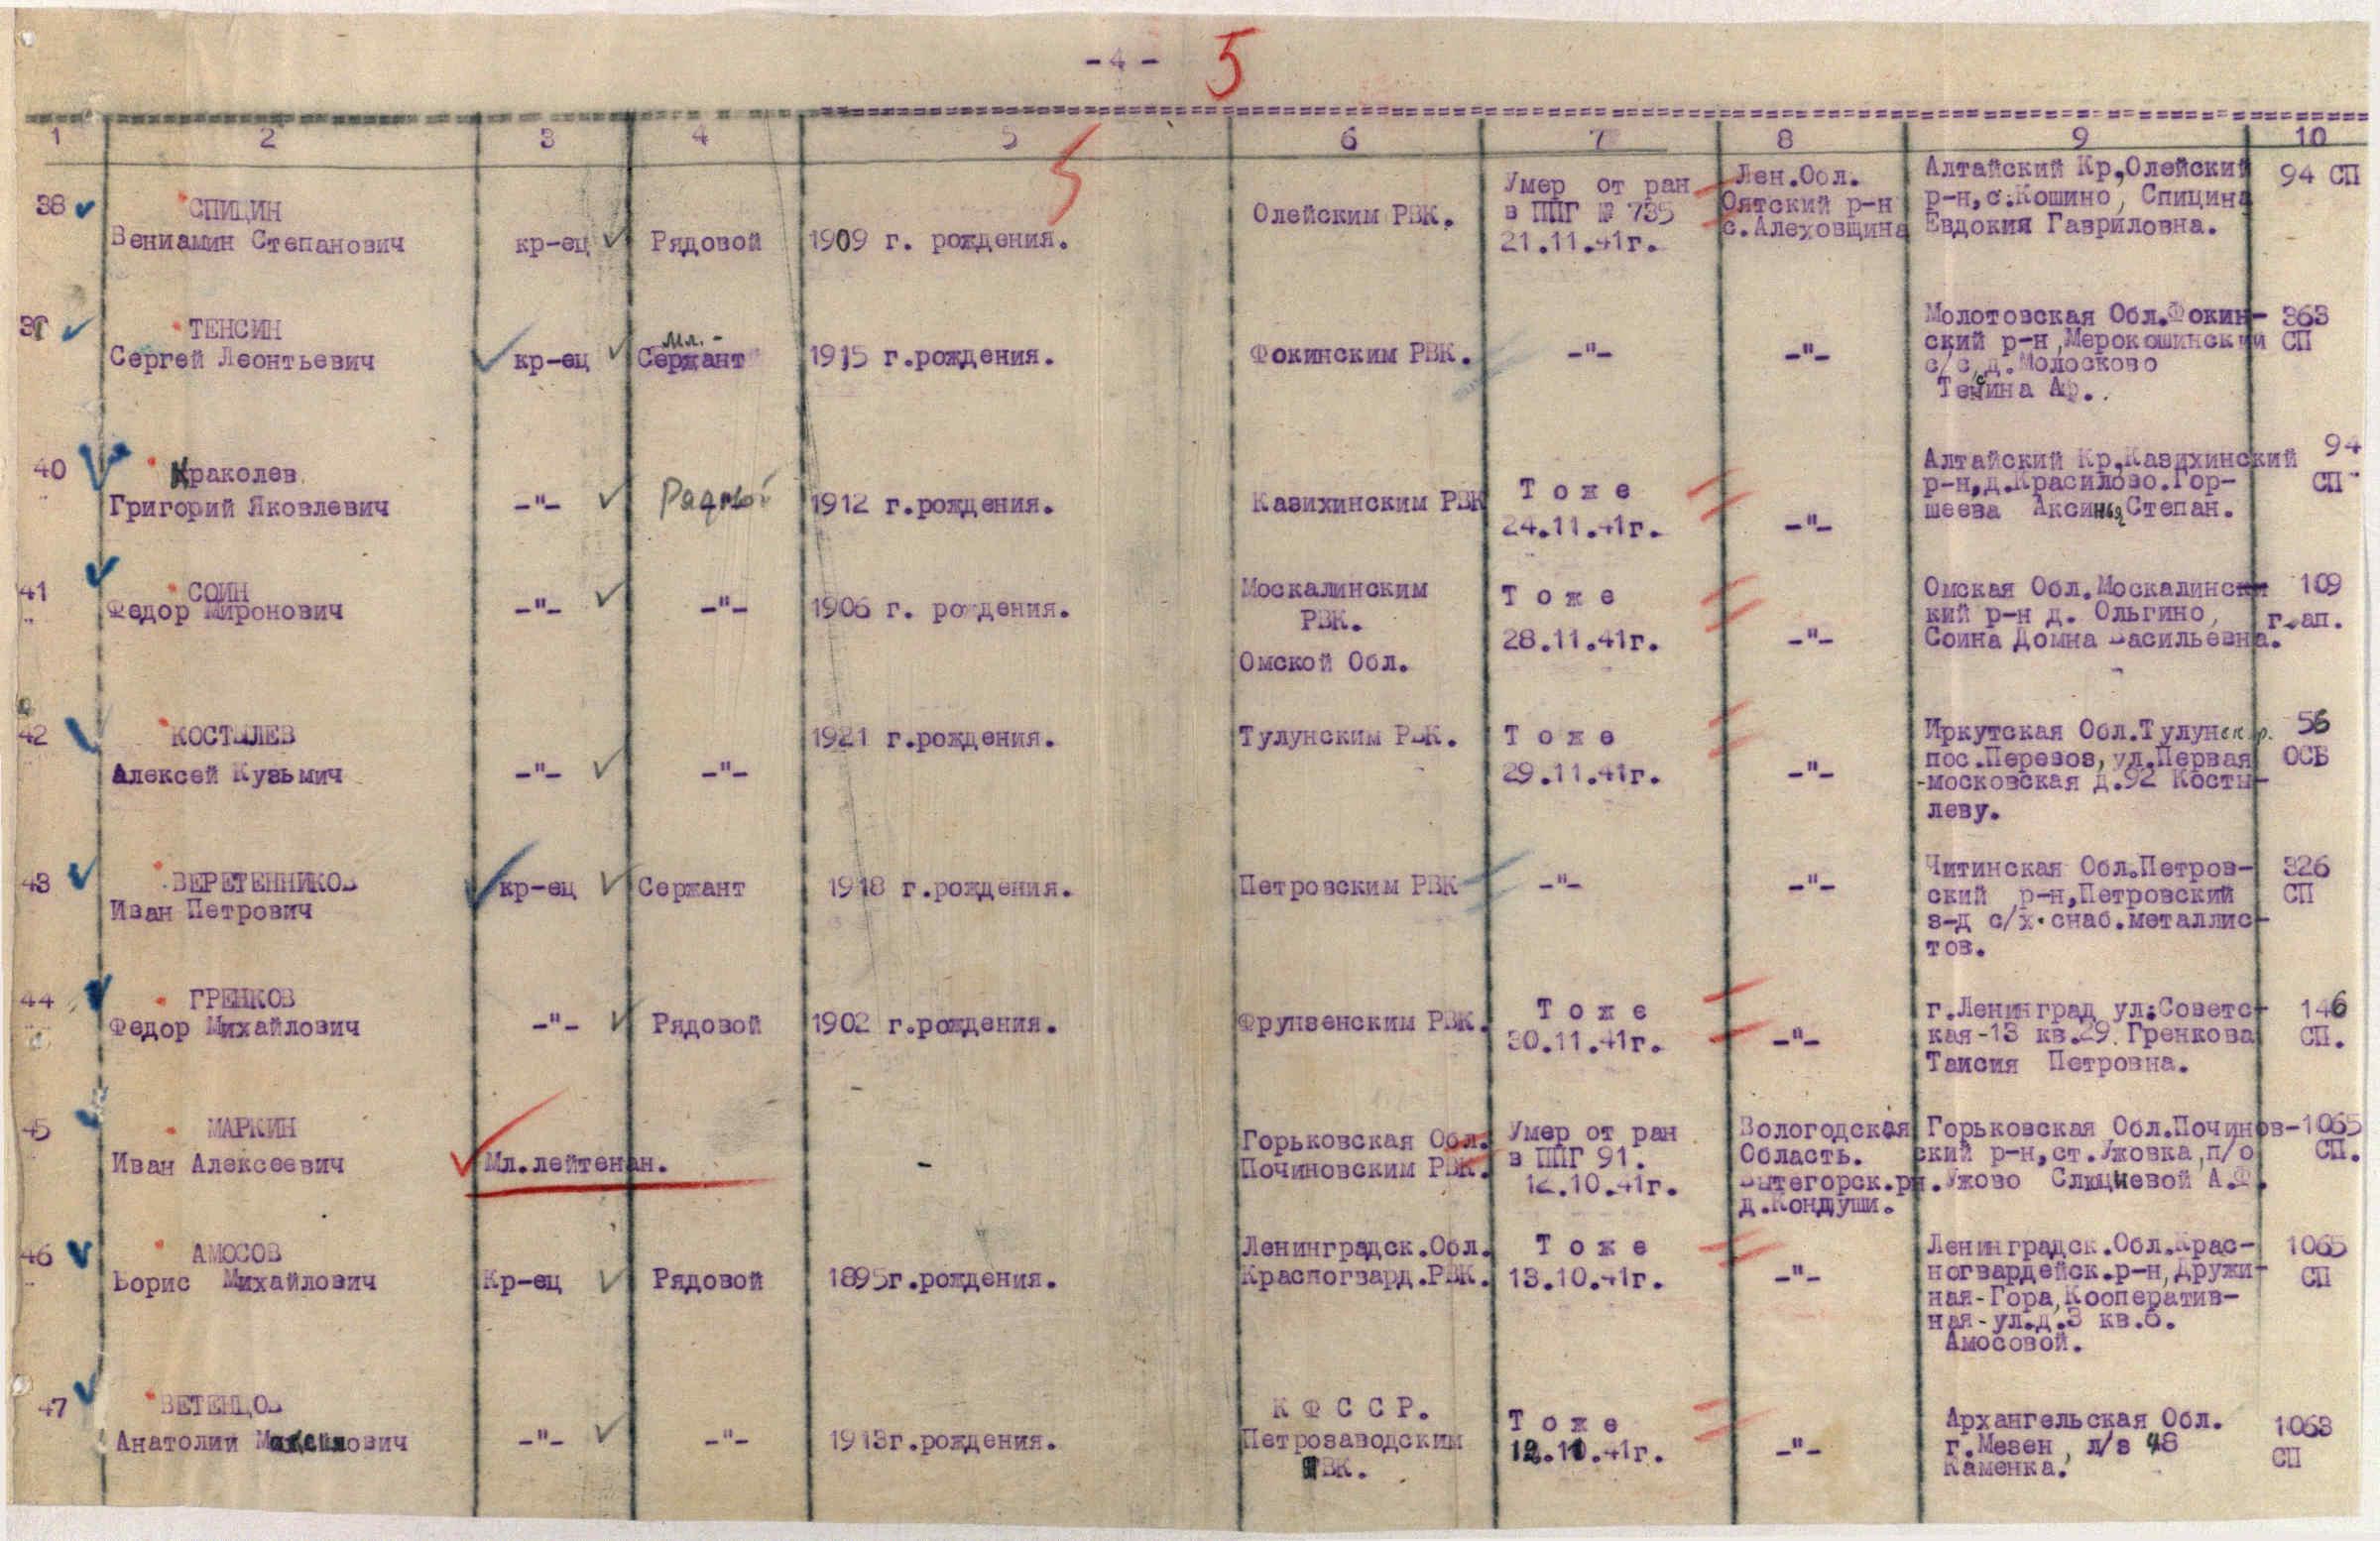 -4- 5
1 2 3 4 5 6 7 8 9 10
5
38 СПИЦИН
Вениамин Степанович
кр-ец
Рядовой
1909 г. рождения.
Олейским РВК.
Умер от ран
в ППГ № 735
21.11.41г.
Лен.Обл.
Оятский р-н
с.Алеховщина
Алтайский Кр,Олейский
р-н,с.Кошино, Спицина
Евдокия Гавриловна.
94 СП
39 ТЕНСИН
Сергей Леонтьевич
кр-ец
Мл.-
Сержант
1915 г.рождения.
Фокинским РВК.
-"-
-"-
Молотовская Обл.Фокин-
ский р-н,Мерокошинский
с/с,д.Молосково
Тенсина Аф.
363
СП
40 Краколев
Григорий Яковлевич
-"-
Рядовой
1912 г.рождения.
Казихинским РВК
Тоже
24.11.41г.
-"-
Алтайский Кр.Казихинский
р-н,д.Красилово.Гор-
шеева Аксинья Степан.
94
СП
41 СОИН
Федор Миронович
-"-
-"-
1906 г. рождения.
Москалинским
РВК.
Омской Обл.
Тоже
28.11.41г.
-"-
Омская Обл.Москалинс
кий р-н д. Ольгино,
Соина Домна Васильевна.
109
г.ап.
42 КОСТЫЛЕВ
Алексей Кузьмич
-"-
-"-
1921 г.рождения.
Тулунским РВК.
Тоже
29.11.41г.
-"-
Иркутская Обл.Тулунск.р.
пос.Перевоз,ул.Первая
-московская д.92 Косты-
леву.
56
ОСБ
43 ВЕРЕТЕННИКОВ
Иван Петрович
кр-ец
Сержант
1918 г.рождения.
Петровским РВК
-"-
-"-
Читинская Обл.Петров-
ский р-н,Петровский
з-д с/х.снаб.металлис-
тов.
326
СП
44 ГРЕНКОВ
Федор Михайлович
-"-
Рядовой
1902 г.рождения.
Фрунзенским РВК.
Тоже
30.11.41г.
-"-
г.Ленинград ул.Советс-
кая-13 кв.29. Гренкова
Таисия Петровна.
146
СП.
45 МАРКИН
Иван Алексеевич
Мл.лейтенан.
-
Горьковская Обл.
Починовским РВК.
Умер от ран
в ППГ 91.
12.10.41г.
Вологодская
Область.
Вытегорск.рн.
д.Кондуши.
Горьковская Обл.Починов-
ский р-н,ст.Ужовка,п/о
Ужово А.Ф.
1065
СП.
46 АМОСОВ
Борис Михайлович
Кр-ец
Рядовой
1895г.рождения.
Ленинградск.Обл.
Красногвард.РВК.
Тоже
13.10.41г.
-"-
Ленинградск.Обл.Крас-
ногвардейск.р-н,Дружи-
ная-Гора,Кооператив-
ная-ул.д.3 кв.6.
Амосовой.
1065
СП
47 ВЕТЕНЦОВ
Анатолий
-"-
-"-
1913г.рождения.
КФССР.
Петрозаводским
ВК.
Тоже
12.10.41г.
-"-
Архангельская Обл.
г.Мезен, л/з 48
Каменка.
1063
СП